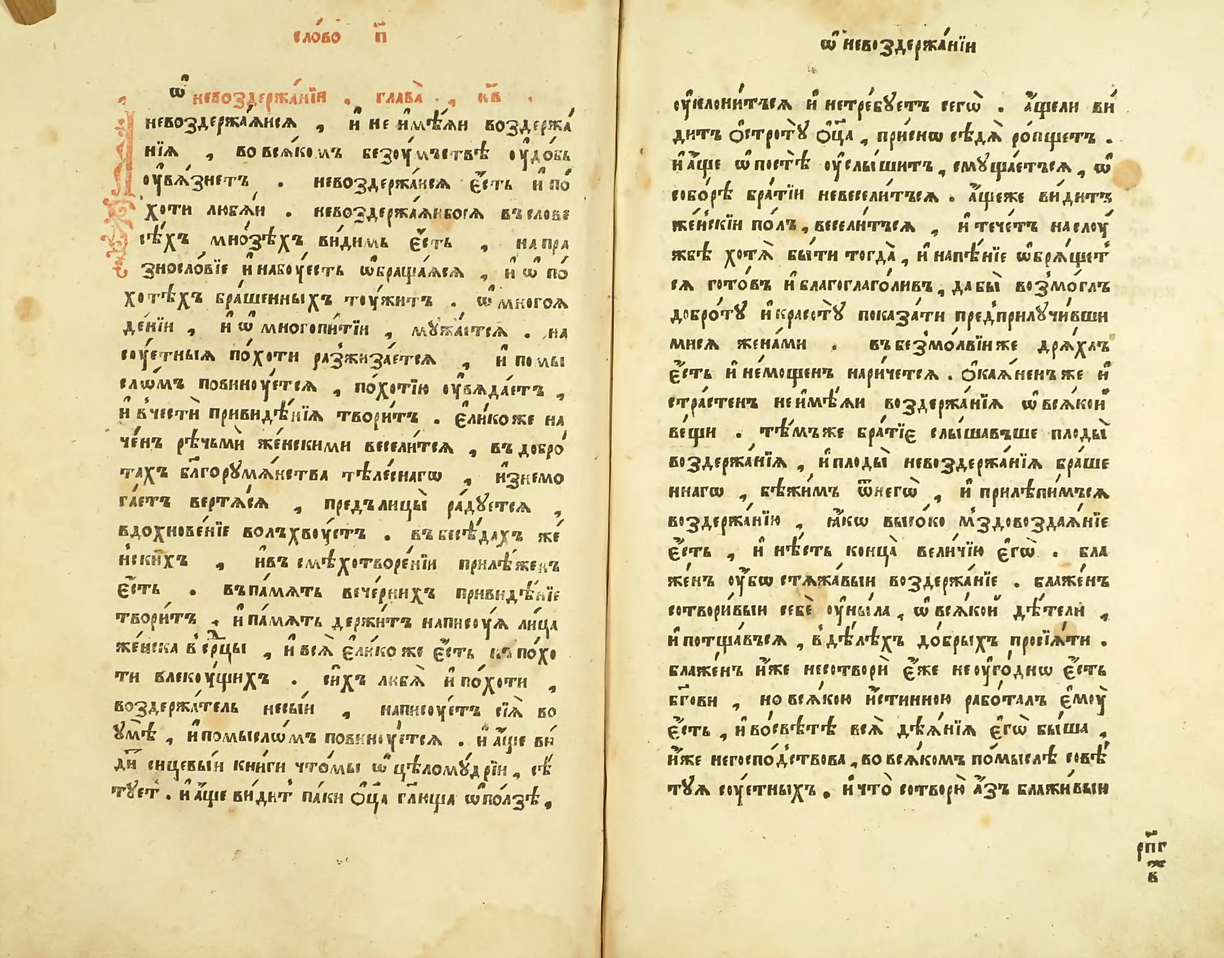 сло́во п҃
ѡ҆ невоздержа́нїи . глава̀ , к҃в .
невоздержа́йнсѧ , и҆ не и҆мѣ́ѧи воздержа́
нїѧ , во всѧ́комъ безꙋ́мьствѣ ᲂу҆до́бь
ᲂу҆вѧ́знетъ . невоздержа́нсѧ є҆́сть и҆ по́
хоти любѧ́й . невоздержа́ѧибосѧ въ слове
сѣ́хъ мно́зѣхъ ви́димь є҆́сть , на пра
зносло́вїе и҆ набоу́есть ѡ҆браща́ѧсѧ , и҆ ѡ҆ по́
хотѣхъ бра́шенныхъ тоу́житъ . ѡ҆ многоѧ
де́нїи , и҆ ѡ҆ многопи́тїи , мꙋжа́етсѧ . на
соу́етныѧ по́хоти разжиза́етсѧ , и҆ по мы́
слѡмъ повиноу́етсѧ , по́хотїю ᲂу҆вѧда́етъ ,
и҆ в чести привидѣ́нїѧ твори́тъ . є҆ли́коже на
че́нъ рѣчьмѝ же́нскими весели́тсѧ , въ добро́
тахъ бл҃горꙋмѧ́нства тѣле́снагѡ , и҆знемо
га́етъ вертѧ́сѧ , предъ лицы̀ ра́дꙋетсѧ ,
вдохнове́нїе волъхвоу́етъ . въ бесѣ́дахъ же́
нскихъ , и҆ въ смѣхотворе́нїи прилѣ́женъ
є҆́сть . въ па́мѧть вече́рнихъ привидѣ́нїе
твори́тъ , и҆ па́мѧть держи́тъ написоу́ѧ ли́ца
же́нска в ср҃цы , и҆ всѧ̀ є҆ли́ко же є҆́сть въ похо
ти влекоу́щихъ . си́хъ любѧ̀ и҆ по́хоти ,
воздержа́тель несы́и , написоу́етъ сїѧ̀ во
ᲂу҆мѣ̀ , и҆ помыслѡмъ повиноу́етсѧ . и҆ а҆́ще ви́
ди сицевы́и кни́ги что́мы ѡ҆ цѣломꙋ́дрїи , сѣ́
тꙋетъ . и҆ а҆́ще ви́дитъ па́ки ѻ҆ц҃а гл҃юща ѡ҆ по́лзѣ ,
ѡ҆ невоздержа́нїи
ᲂу҆клони́тьсѧ и҆ нетре́бꙋетъ сегѡ̀ . а҆́щели ви́
дитъ ѻ҆стротꙋ̀ ѻ҆ц҃а , при́снѡ сѣдѧ̀ ро́пщетъ .
и҆ а҆́ще ѡ҆ по́стѣ ᲂу҆слы́шитъ , смꙋща́етьсѧ , ѡ҆
собо́рѣ бра́тїи невесели́тьсѧ . а҆́щеже ви́дитъ
же́нскїи по́лъ , весели́тьсѧ , и҆ тече́тъ на слоу́
жбѣ хотѧ̀ бы́ти тогда̀ , и҆ напѣ́нїе ѡ҆брѧ́щет
сѧ гото́въ и҆ благоглаго́ливъ , да бы̀ возмо́глъ
добротꙋ̀ и҆ красотꙋ̀ показа́ти предприлꙋчи́вши
мисѧ жена́ми . въ безмо́лвїи же дрѧ́хлъ
є҆́сть и҆ не́мощенъ нарече́тсѧ . ѻ҆каѧ́ненъ же и҆
стра́стенъ не и҆мѣ́ѧи воздержа́нїѧ ѡ҆ всѧ́кои
ве́щи . тѣ́мъже бра́тїе слы́шавъше плоды̀
воздержа́нїѧ , и҆ плоды̀ невоздержа́нїѧ бра́ше
ннагѡ , бѣжи́мъ ѿ негѡ̀ , и҆ прилѣпи́мъсѧ
воздержа́нїю , ꙗ҆́кѡ высо́ко мздовоздаѧ́нїе
є҆́сть , и҆ нѣ́сть конца̀ вели́чїю є҆гѡ̀ . бла
же́нъ ᲂу҆́бѡ стѧжа́выи воздержа́нїе . блаже́нъ
сотвори́выи себѐ ᲂу҆ны́ла , ѡ҆ всѧ́кой дѣ́тели ,
и҆ потща́вьсѧ , в дѣ́лѣхъ до́брыхъ просїѧ́ти .
блаже́нъ и҆́же несотворѝ є҆́же не ᲂу҆го́днѡ є҆́сть
бг҃ови , но всѧ́кою и҆́стинною рабо́талъ є҆моу̀
є҆́сть , и҆ во свѣ́тѣ всѧ̀ дѣѧ́нїѧ є҆гѡ̀ бы́ша ,
и҆́же негоспо́дствова , во всѧ́комъ по́мыслѣ совѣ́
тꙋѧ соу́етныхъ . и҆ что̀ сотворю̀ а҆́зъ блажи́выи
рп҃г
ж҃
в